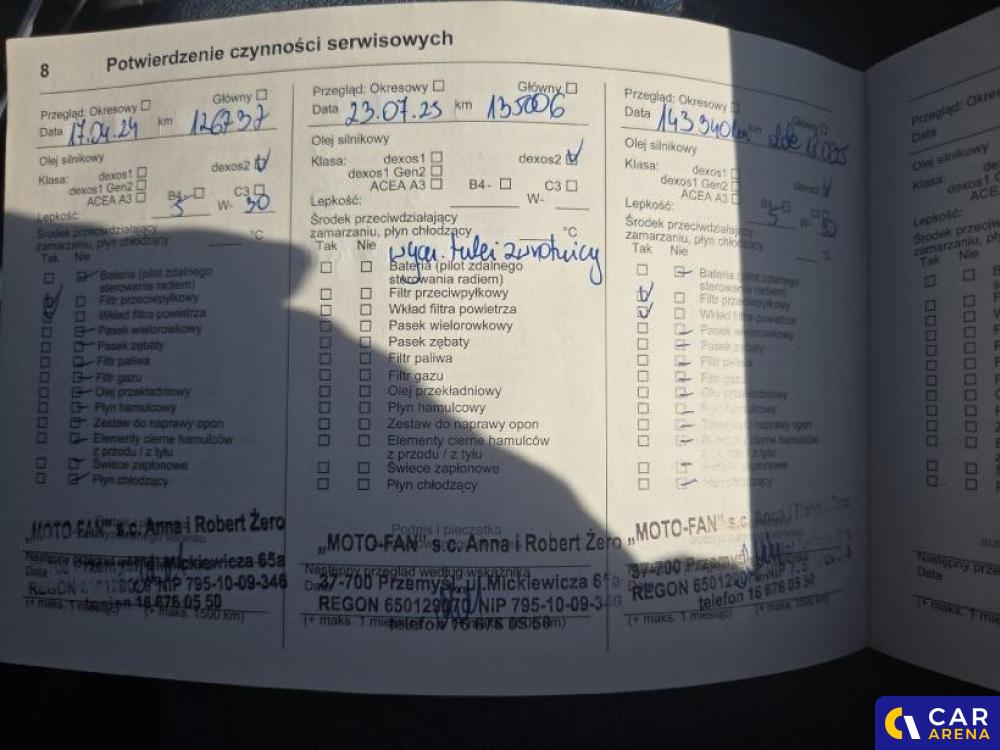 8 Potwierdzenie czynności serwisowych
Przegląd: Okresowy Główny
Data 17.04.24 km 126737
Olej silnikowy
Klasa: dexos1 dexos2
dexos1 Gen2
ACEA A3 B4- C3
Lepkość: 5 W- 30
Środek przeciwdziałający
zamarzaniu, płyn chłodzący °C
Tak Nie
Bateria (pilot zdalnego
sterowania radiem)
Filtr przeciwpyłkowy
Wkład filtra powietrza
Pasek wielorowkowy
Pasek zębaty
Filtr paliwa
Filtr gazu
Olej przekładniowy
Płyn hamulcowy
Zestaw do naprawy opon
Elementy cierne hamulców
z przodu / z tyłu
Świece zapłonowe
Płyn chłodzący
„MOTO-FAN” s.c. Anna i Robert Żero
Mickiewicza 65a
REGON NIP 795-10-09-346
telefon 16 676 05 50
(+ maks. 1 miesiąc) (+ maks. 1500 km)
Przegląd: Okresowy Główny
Data 23.07.25 km 135006
Olej silnikowy
Klasa: dexos1 dexos2
dexos1 Gen2
ACEA A3 B4- C3
Lepkość: W-
Środek przeciwdziałający
zamarzaniu, płyn chłodzący °C
Tak Nie tulei zwrotnicy
Bateria (pilot zdalnego
sterowania radiem)
Filtr przeciwpyłkowy
Wkład filtra powietrza
Pasek wielorowkowy
Pasek zębaty
Filtr paliwa
Filtr gazu
Olej przekładniowy
Płyn hamulcowy
Zestaw do naprawy opon
Elementy cierne hamulców
z przodu / z tyłu
Świece zapłonowe
Płyn chłodzący
Podpis i pieczątka
„MOTO-FAN” s.c. Anna i Robert Żero
Następny przegląd według wskaźnika
37-700 Przemyśl, ul.Mickiewicza
REGON 650129070 NIP 795-10-09-346
telefon 16 676 05 50
(+ maks. 1
Przegląd: Okresowy Główny
Data 143 340 km km
Olej silnikowy
Klasa: dexos1 dexos2
dexos1 Gen2
ACEA A3 B4- C3
Lepkość: 5 W- 30
Środek przeciwdziałający
zamarzaniu, płyn chłodzący °C
Tak Nie
Bateria (pilot zdalnego
sterowania radiem)
Filtr przeciwpyłkowy
Wkład filtra powietrza
Pasek wielorowkowy
Pasek zębaty
Filtr paliwa
Filtr gazu
Olej przekładniowy
Płyn hamulcowy
Zestaw do naprawy opon
Elementy cierne hamulców
z przodu / z tyłu
Świece zapłonowe
Płyn chłodzący
„MOTO-FAN” s.c. Anna i Robert Żero
37-700 Przemyśl
REGON NIP 795-10-09-346
telefon 16 676 05 50
(+ maks. 1 miesiąc) (+ maks. 1500 km)
Przegląd: Okresowy
Data
Olej silnikowy
Klasa:
dexos1
ACEA
Lepkość:
Środek
zamarzaniu,
Tak Nie
Następny
Data
(+ maks. 1
CAR
ARENA